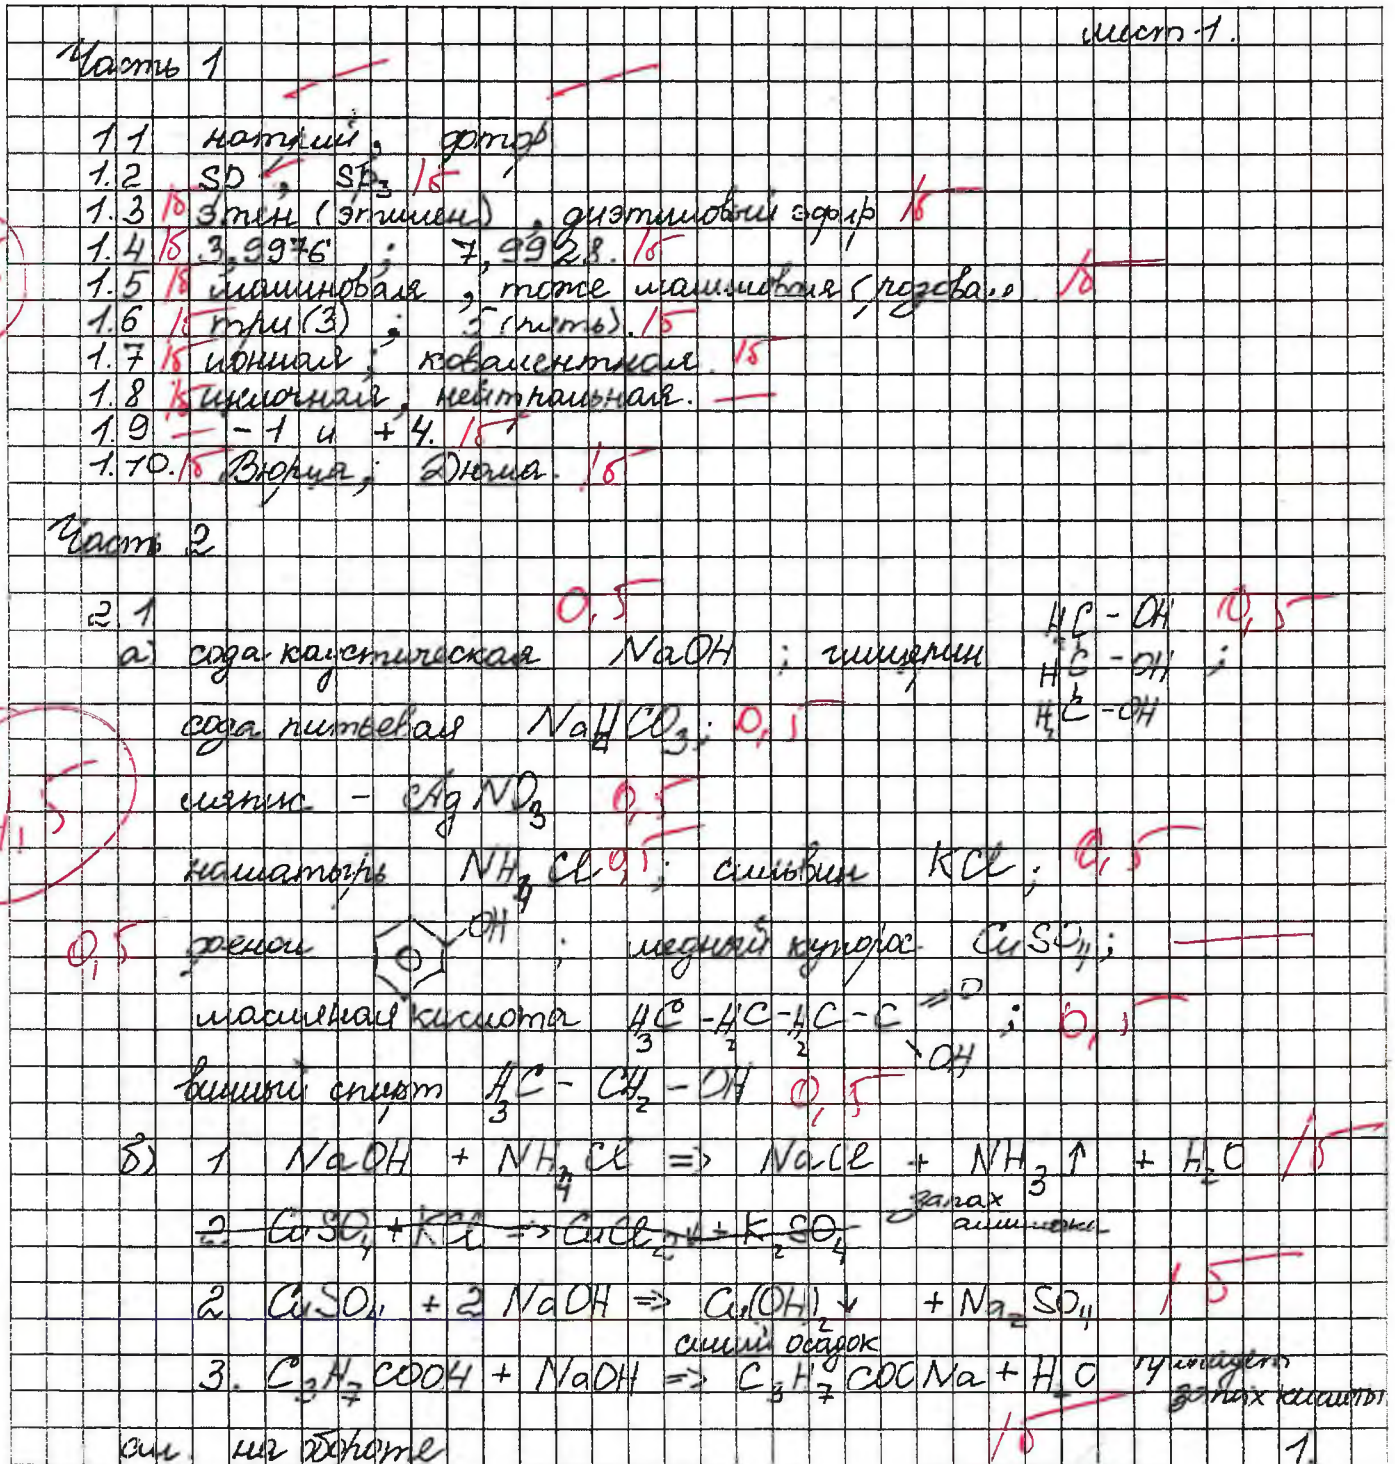 лист 1.
Часть 1
1.1 натрий, фтор
1.2 SO, SF₃ 1б
1.3 1б Этен (этилен), диэтиловый эфир 1б
1.4 1б 3,9976; 7,9928. 1б
1.5 1б малиновая, тоже малиновая (розовая) 1б
1.6 1б три (3); 5 (пять). 1б
1.7 1б ионная; ковалентная. 1б
1.8 1б щелочная, нейтральная. —
1.9 — -1 и +4. 1б
1.10. 1б Вюрца; Дюма. 1б
Часть 2
2.1
0,5 0,5
а) сода каустическая NaOH; глицерин H₂C-OH HC-OH H₂C-OH;
сода питьевая NaHCO₃; 0,5
ляпис - AgNO₃ 0,5
нашатырь NH₄Cl 0,5; сильвин KCl; 0,5
0,5 фенол OH; медный купорос CuSO₄; —
масляная кислота H₃C-H₂C-H₂C-C =O OH; 0,5
винный спирт H₃C-CH₂-OH 0,5
б) 1 NaOH + NH₄Cl => NaCl + NH₃↑ + H₂O 1б
запах аммиака
2. CuSO₄ + KCl => CuCl₂ + K₂SO₄
2. CuSO₄ + 2 NaOH => Cu(OH)₂↓ + Na₂SO₄ 1б
синий осадок
3. C₃H₇COOH + NaOH => C₃H₇COONa + H₂O запах кислоты
1б
см. на обороте 1.